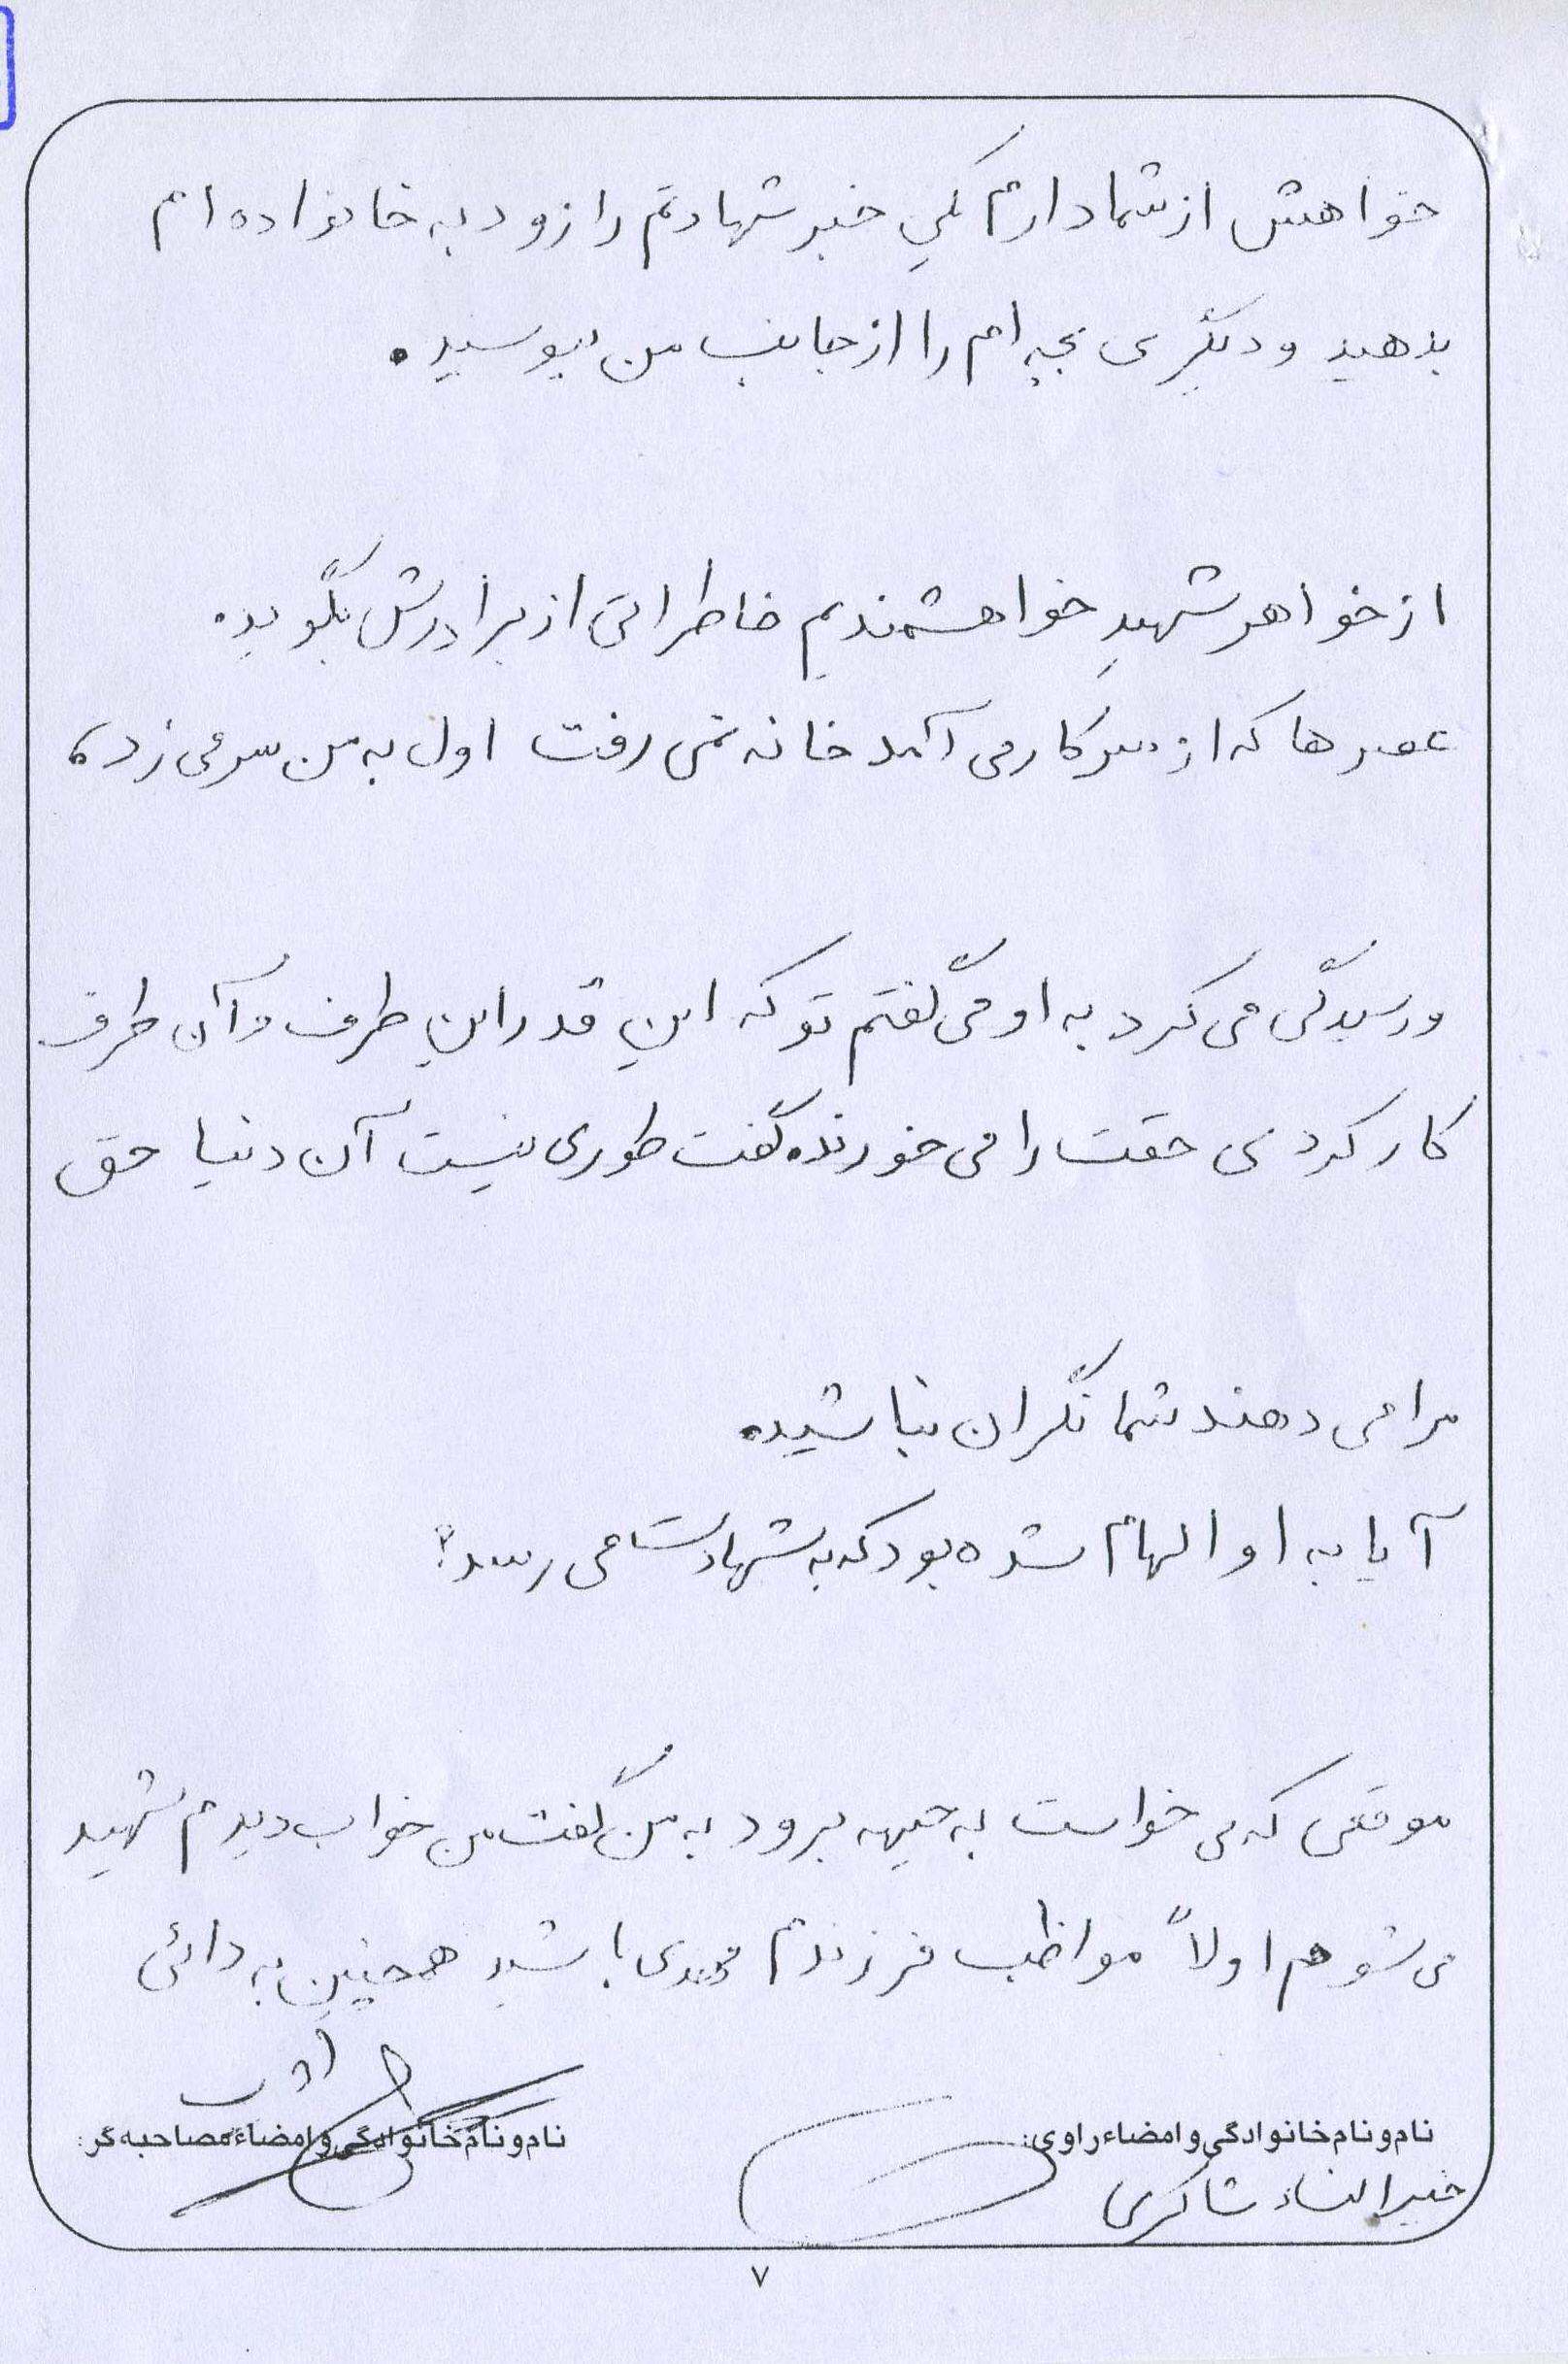 خواهش از شما دارم یکی خبر شهادتم را زود به خانواده ام
بدهید و دیگری بچه ام را از جانب من ببوسید.
از خواهر شهید خواهشمندیم خاطراتی از برادرش بگوید.
عصرها که از سر کار می آمد خانه نمی رفت اول به من سر می زد،
و رسیدگی می کرد به او می گفتم تو که این قدر این طرف و آن طرف
کار کردی حقت را می خورند. گفت طوری نیست آن دنیا حق
مرا می دهند شما نگران نباشید.
آیا به او الهام شده بود که به شهادت می رسد؟
موقعی که می خواست به جبهه برود به من گفت من خواب دیدم شهید
می شوم اولاً مواظب فرزندم مهدی باشید همچنین به دائی
نام و نام خانوادگی و امضاء راوی:
نام و نام خانوادگی و امضاء مصاحبه گر:
خیرالنساء شاکری
۷